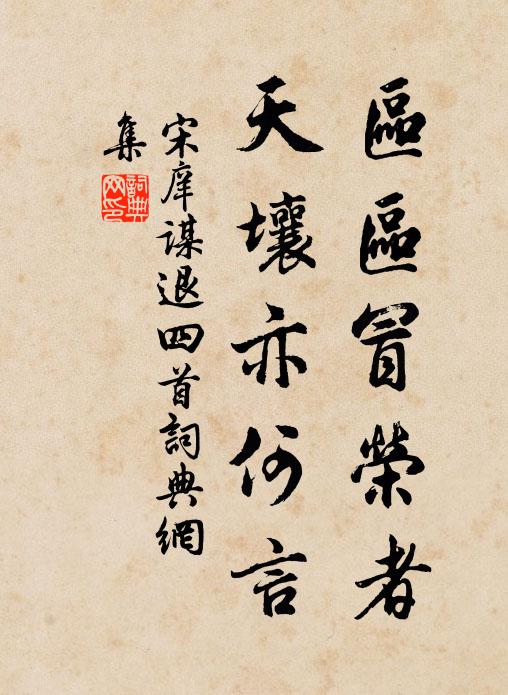 區區冒榮者
天壤亦何言
宋庠謀退四首詞典網
集
詞典網印